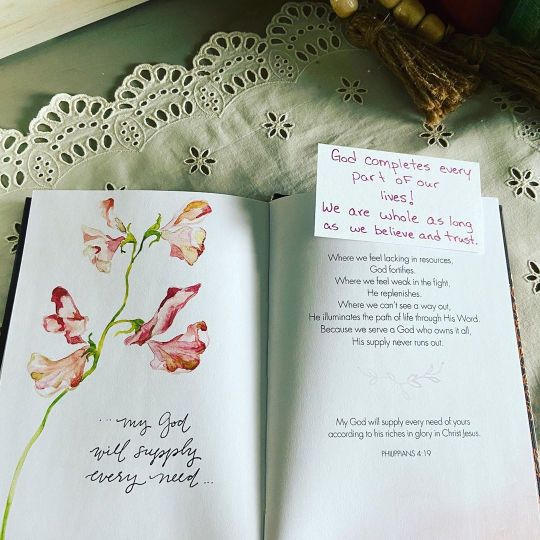 ...my God
will supply
every need...
God completes every
part of our
lives!
We are whole as long
as we believe and trust.
Where we feel lacking in resources,
God fortifies.
Where we feel weak in the fight,
He replenishes.
Where we can't see a way out,
He illuminates the path of life through His Word.
Because we serve a God who owns it all,
His supply never runs out.
My God will supply every need of yours
according to his riches in glory in Christ Jesus.
PHILIPPIANS 4:19